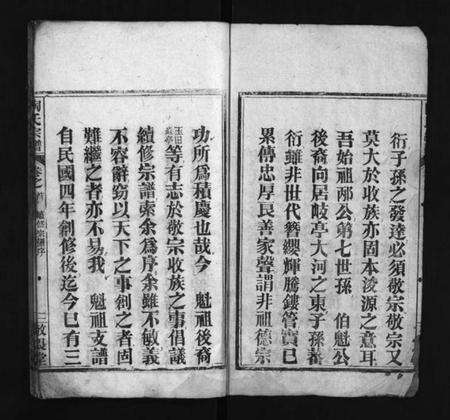 衍子孫之發達必須敬宗敬宗又
莫大於收族亦固本淩源之意耳
吾始祖邴公弟七世孫　伯魁公
後裔向居岐亭大河之東子孫蕃
衍雖非世代簪纓輝騰鏤管實已
累傳忠厚良善家聲謂非祖德宗
功所爲積慶也哉今　魁祖後裔
等有志於敬宗收族之事倡議
續修宗譜索余爲序余雖不敏義
不容辭窃以天下之事創之者固
難繼之者亦不易我　魁祖支譜
自民國四年創修後迄今已有三
氏宗譜
卷之首